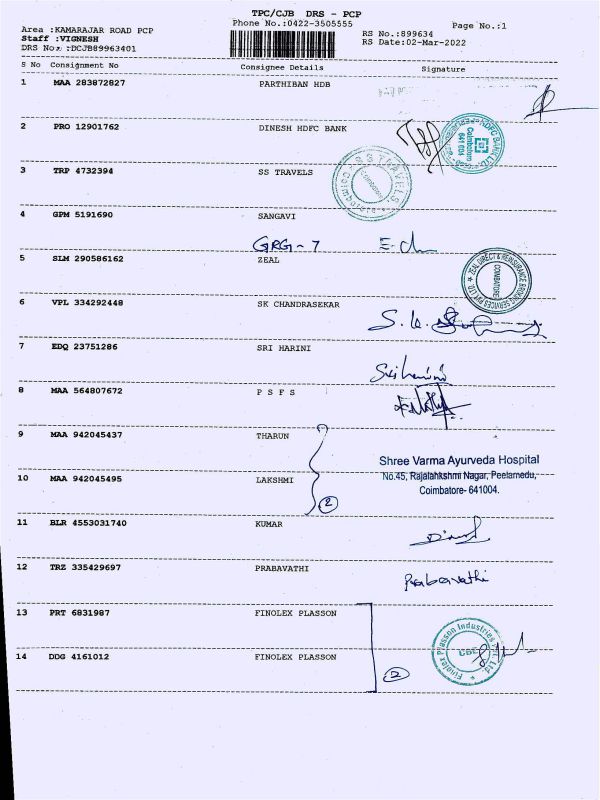 TPC/CJB DRS - PCP
Phone No.:0422-3505555
Page No.:1
Area :KAMARAJAR ROAD PCP
Staff :VIGNESH
DRS No: :DCJB89963401
RS No.:899634
RS Date:02-Mar-2022
S No Consignment No Consignee Details Signature
1 MAA 283872827 PARTHIBAN HDB
2 PRO 12901762 DINESH HDFC BANK
HDFC BANK LTD
Coimbatore
641 004
3 TRP 4732394 SS TRAVELS
TRAVELS
Coimbatore
4 GPM 5191690 SANGAVI
GRG-7
5 SLM 290586162 ZEAL
ZEAL DIRECT & REINSURANCE BROKING SERVICES PVT. LTD.
COIMBATORE
6 VPL 334292448 SK CHANDRASEKAR
7 EDQ 23751286 SRI HARINI
Sri harini
8 MAA 564807672 P S F S
9 MAA 942045437 THARUN
Shree Varma Ayurveda Hospital
No.45, Rajalahkshmi Nagar, Peelamedu,
Coimbatore- 641004.
10 MAA 942045495 LAKSHMI
2
11 BLR 4553031740 KUMAR
12 TRZ 335429697 PRABAVATHI
Prabavathi
13 PRT 6831987 FINOLEX PLASSON
14 DDG 4161012 FINOLEX PLASSON
Finolex Plasson Industries Pvt. Ltd.
CBE
2